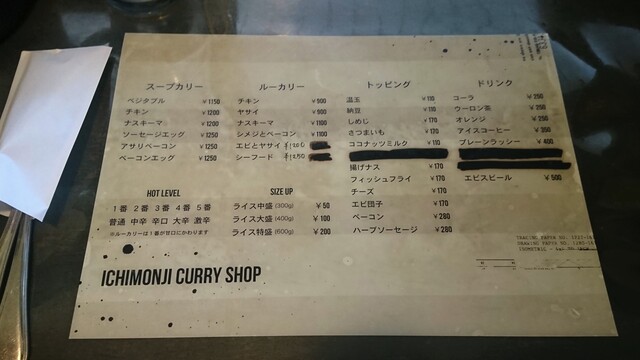 スープカリー
ベジタブル ￥1150
チキン ￥1200
ナスキーマ ￥1200
ソーセージエッグ ￥1250
アサリベーコン ￥1250
ベーコンエッグ ￥1250
ルーカリー
チキン ￥900
ヤサイ ￥900
ナスキーマ ￥1100
シメジとベーコン ￥1100
エビとヤサイ ￥1200
シーフード ￥1250
トッピング
温玉 ￥110
納豆 ￥110
しめじ ￥170
さつまいも ￥170
ココナッツミルク ￥110
揚げナス ￥170
フィッシュフライ ￥170
チーズ ￥170
エビ団子 ￥170
ベーコン ￥280
ハーブソーセージ ￥280
ドリンク
コーラ ￥250
ウーロン茶 ￥250
オレンジ ￥250
アイスコーヒー ￥300
プレーンラッシー ￥400
エビスビール ￥500
HOT LEVEL
1番 2番 3番 4番 5番
普通 中辛 辛口 大辛 激辛
※ルーカリーは1番が甘口にかわります
SIZE UP
ライス中盛 (300g) ￥50
ライス大盛 (400g) ￥100
ライス特盛 (600g) ￥200
ICHIMONJI CURRY SHOP